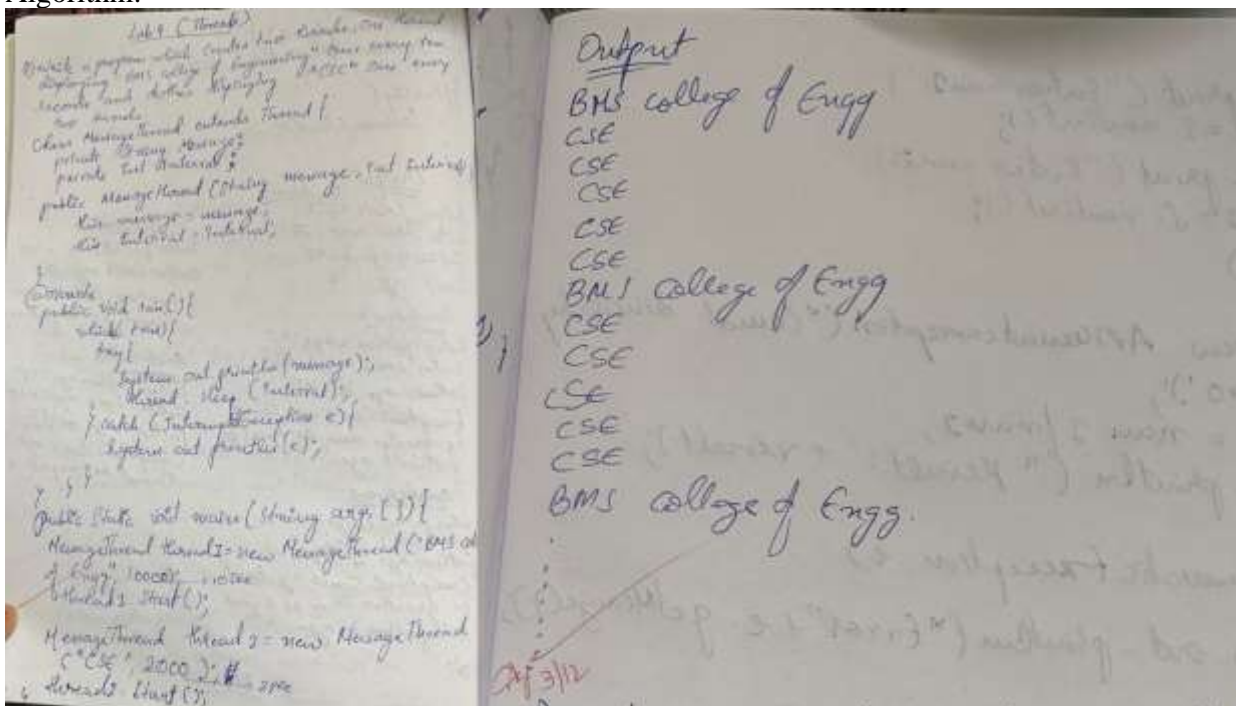 Algorithm:
Lab 9 (Threads)
Write a program which creates two threads, one thread
displaying "BMS college of Engineering" once every ten
seconds and another displaying "CSE" once every
two seconds
class MessageThread extends Thread {
private String message;
private int interval;
public MessageThread (String message, int interval)
this.message = message;
this.interval = interval;
}
public void run() {
while (true) {
try {
System.out.println(message);
Thread.sleep (interval);
} catch (InterruptedException e) {
System.out.println(e);
} } }
public static void main(String args []) {
MessageThread thread1 = new MessageThread ("BMS col
of Engg", 10000); 10sec
thread1.start();
MessageThread thread2 = new MessageThread
("CSE", 2000); 2sec
thread2.start();
Output
BMS college of Engg
CSE
CSE
CSE
CSE
CSE
BMS college of Engg
CSE
CSE
CSE
CSE
CSE
BMS college of Engg.
3/12